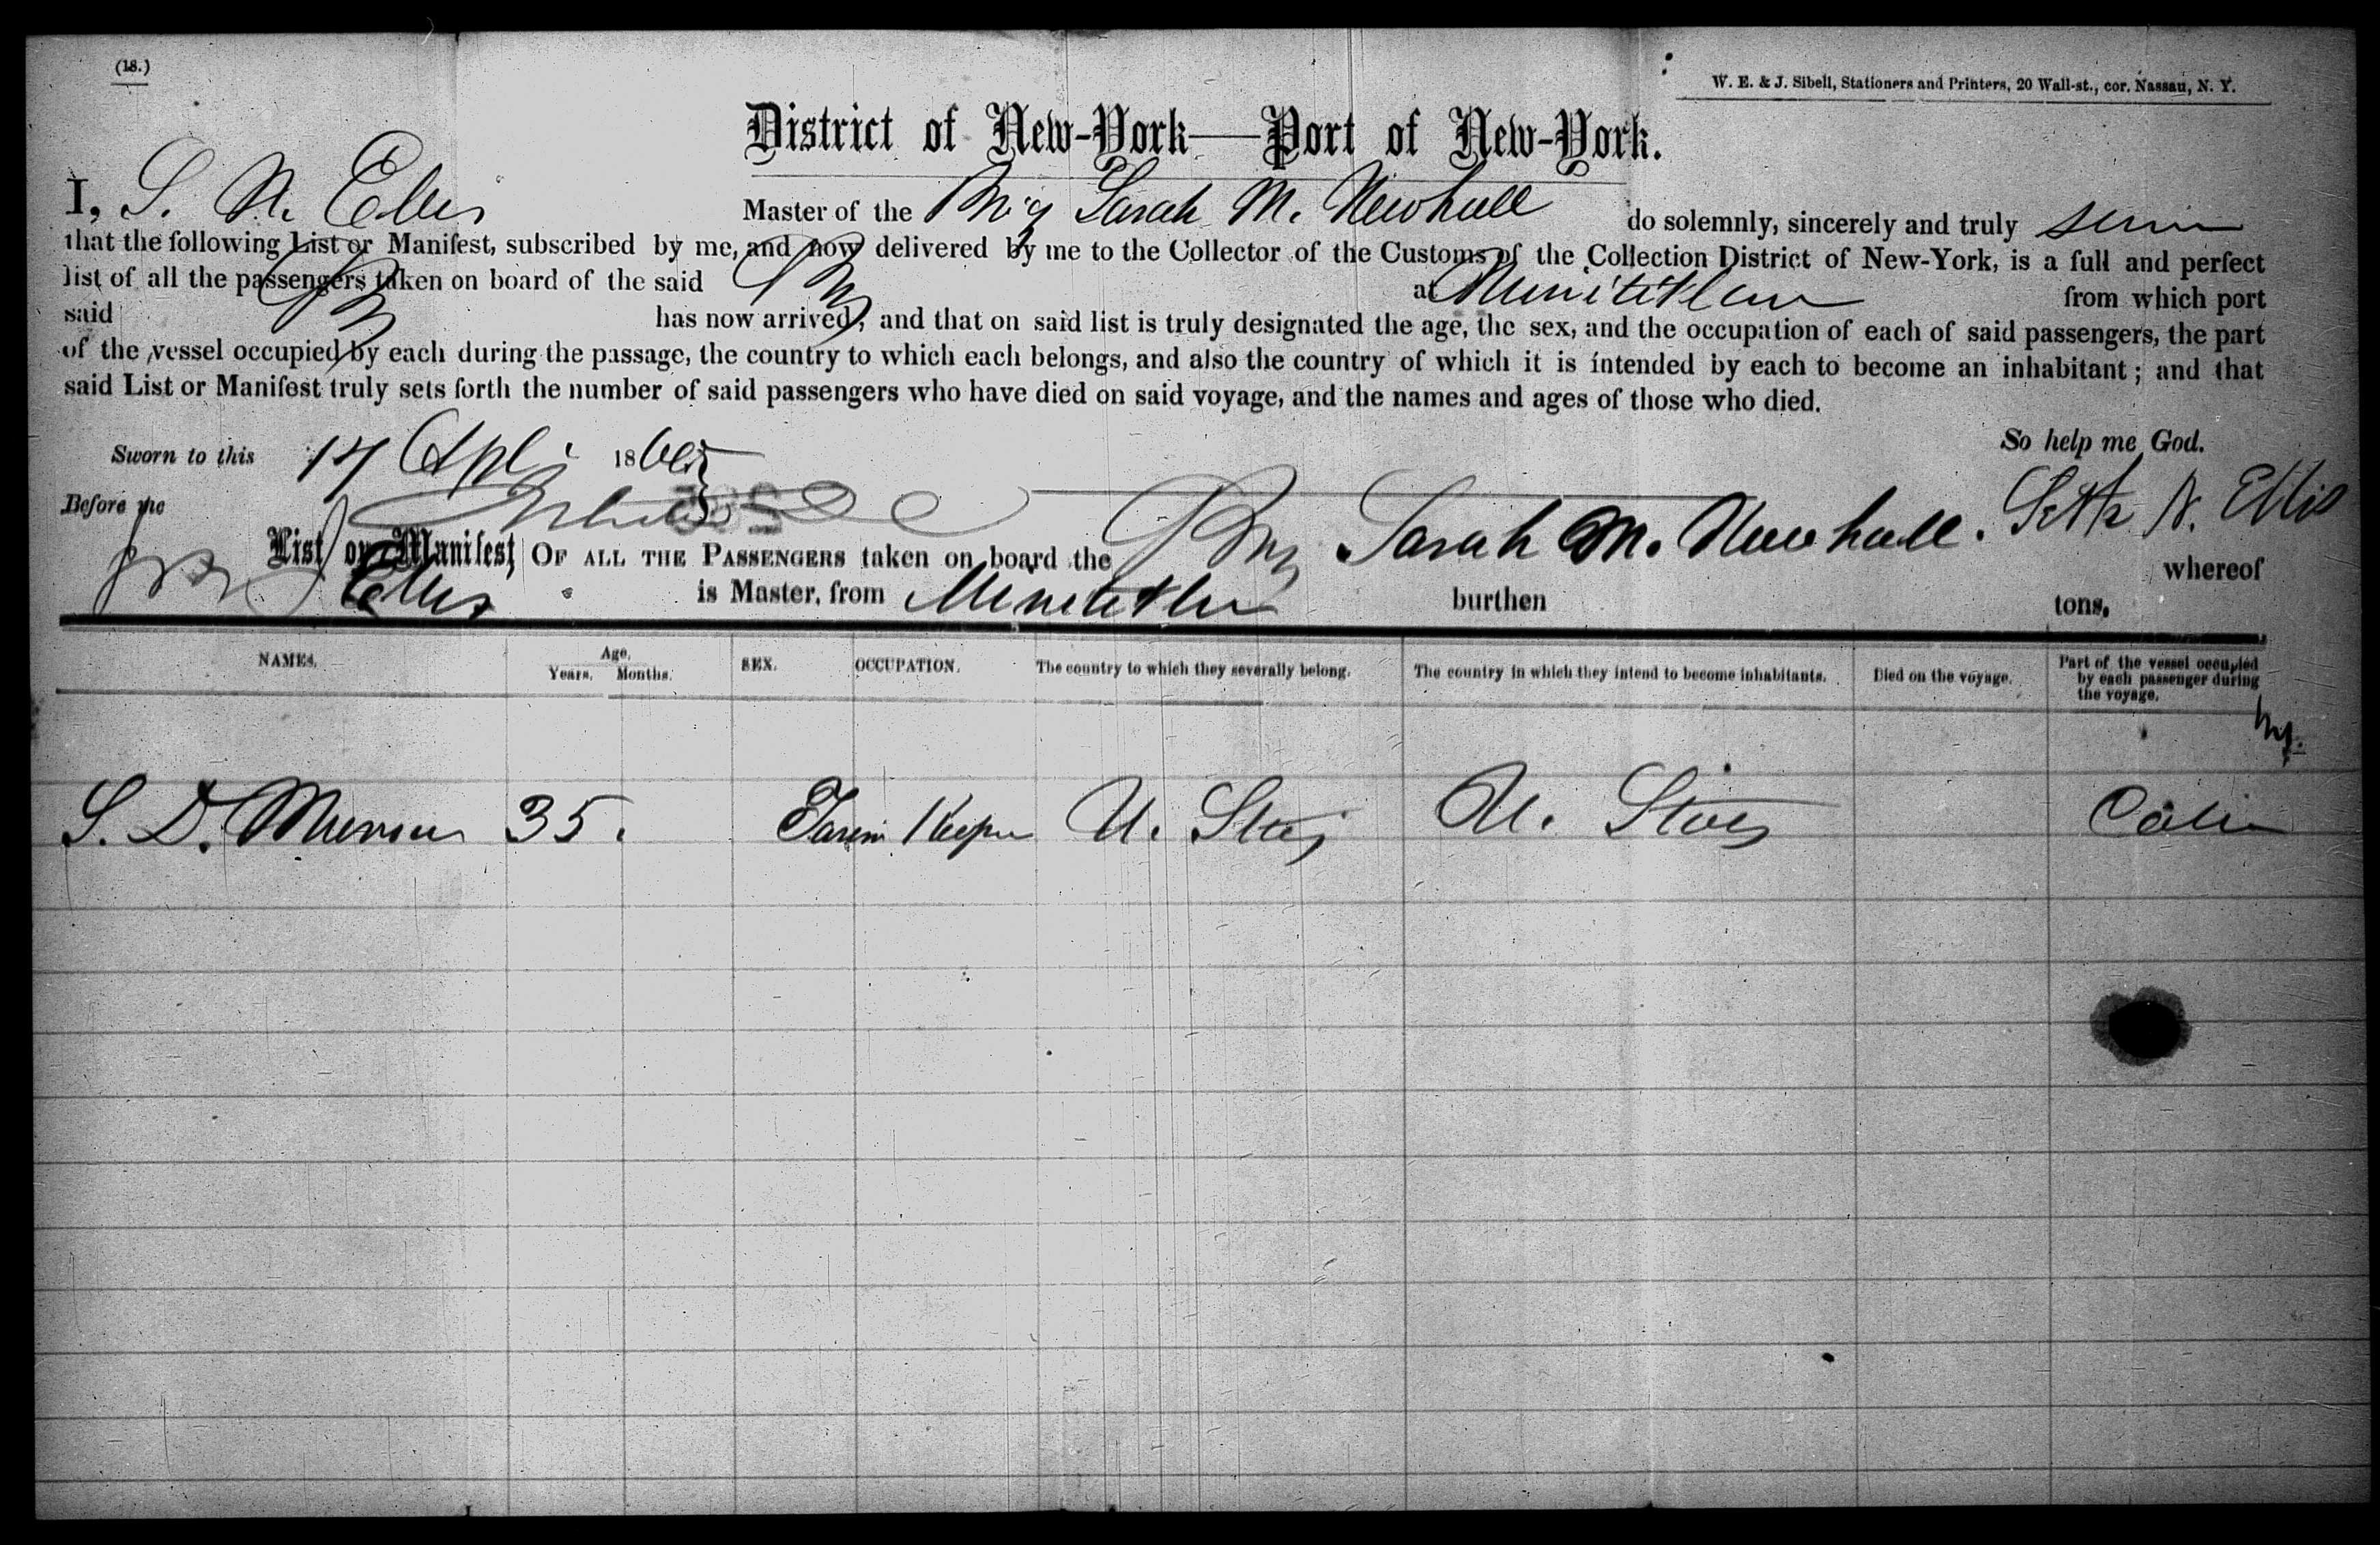 (18.)
W. E. & J. Sibell, Stationers and Printers, 20 Wall-st., cor. Nassau, N. Y.
District of New-York—Port of New-York.
I, S. N. Ellis Master of the Brig Sarah M. Newhall do solemnly, sincerely and truly
that the following List or Manifest, subscribed by me, and now delivered by me to the Collector of the Customs of the Collection District of New-York, is a full and perfect
list of all the passengers taken on board of the said Brig at Minititlan from which port
said Brig has now arrived; and that on said list is truly designated the age, the sex, and the occupation of each of said passengers, the part
of the vessel occupied by each during the passage, the country to which each belongs, and also the country of which it is intended by each to become an inhabitant; and that
said List or Manifest truly sets forth the number of said passengers who have died on said voyage, and the names and ages of those who died.
So help me God.
Sworn to this 17 Apl 186
Before me
Seth N. Ellis
List or Manifest OF ALL THE PASSENGERS taken on board the Brig Sarah M. Newhall. whereof
Ellis is Master, from burthen tons.
NAMES. Age. Years. Months. SEX. OCCUPATION. The country to which they severally belong. The country in which they intend to become inhabitants. Died on the voyage. Part of the vessel occupied by each passenger during the voyage.
S. D. 35. Keeper U. States U. States Cabin